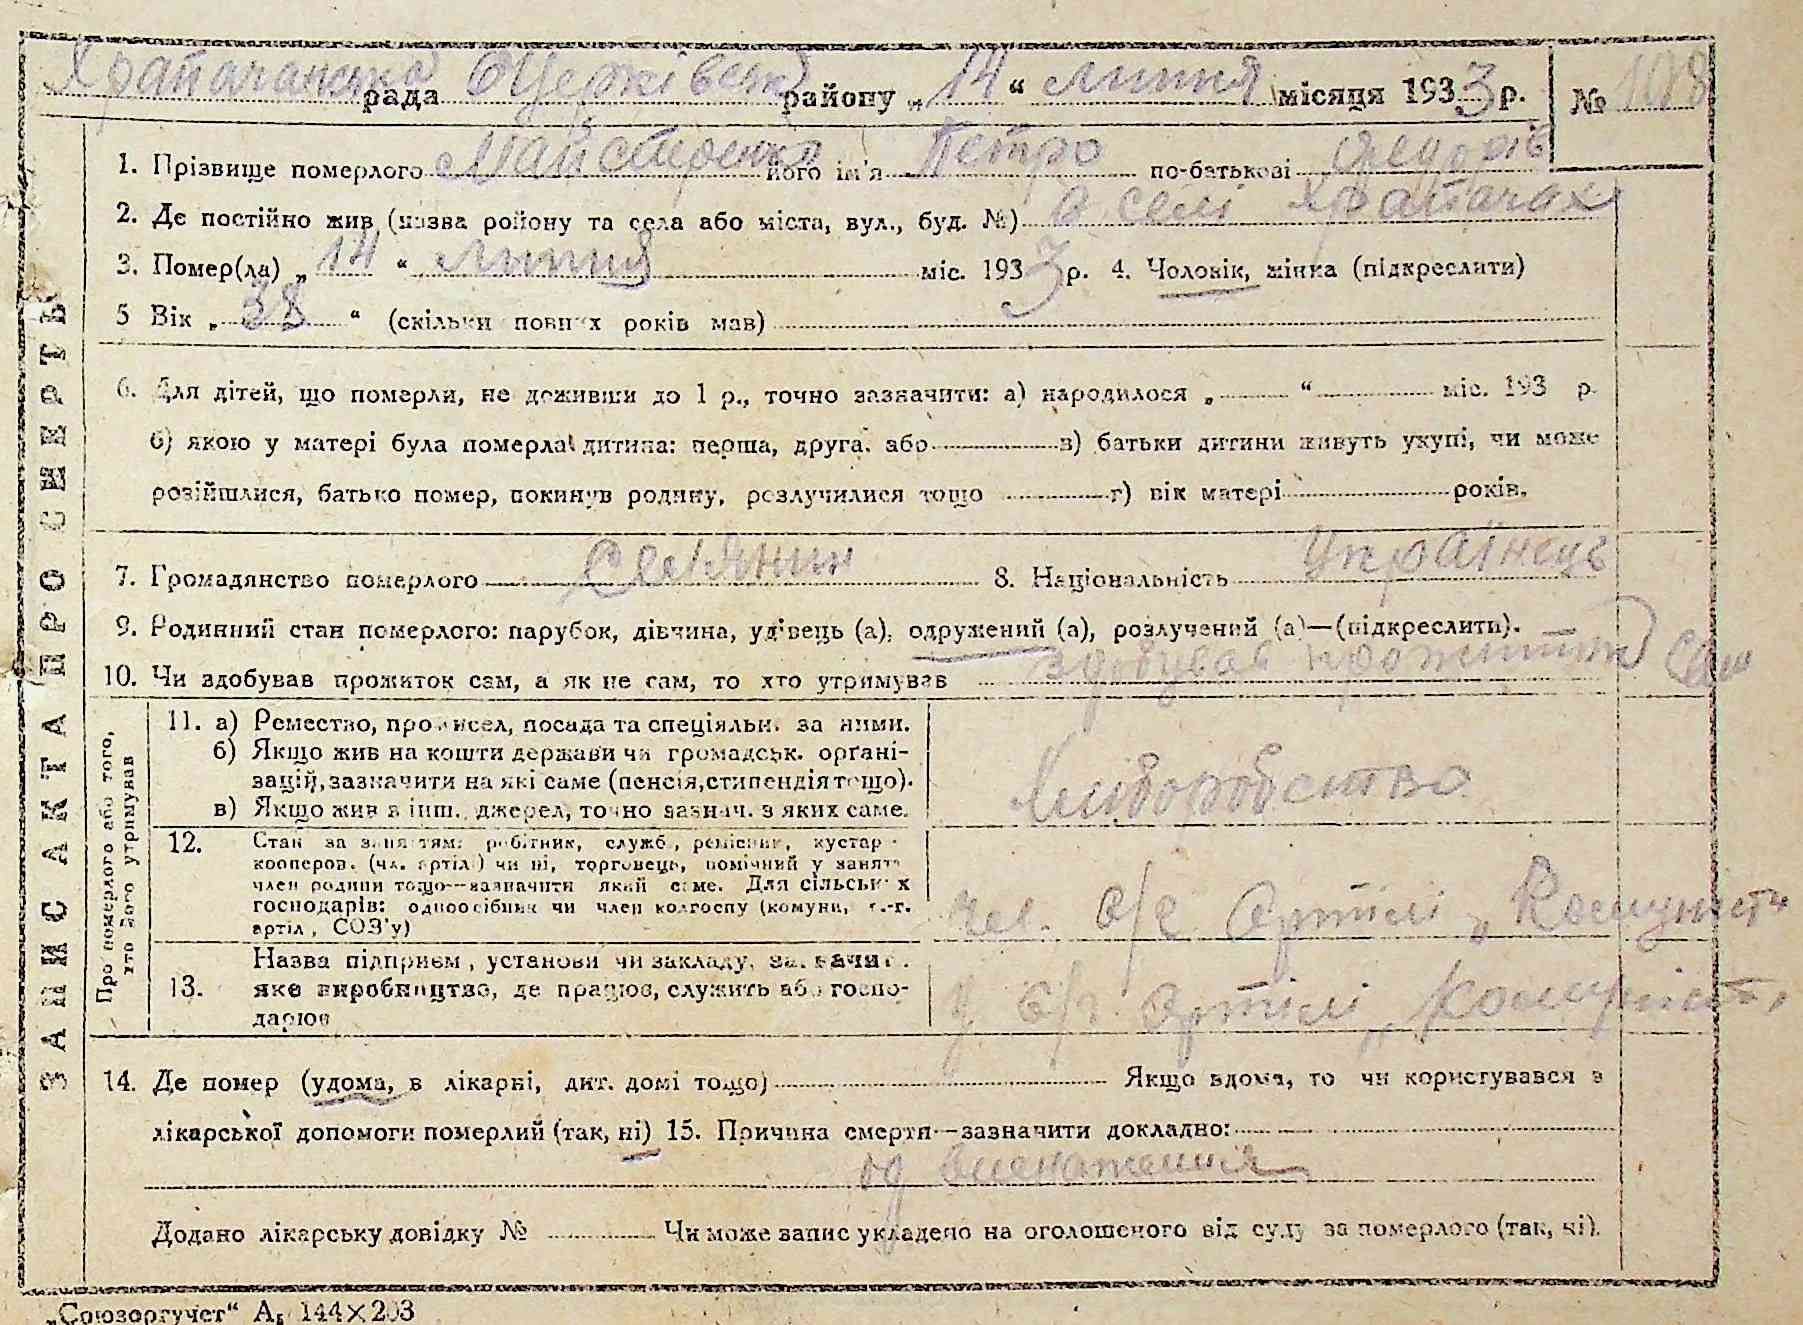 Храпачанська рада БЦерківськ району „14“ липня місяця 1933 р. № 108
1. Прізвище померлого Майстренко його ім'я Петро по-батькові Федорів
2. Де постійно жив (назва ройону та села або міста, вул., буд. №) в селі Храпачах
3. Помер(ла) „14“ липня міс. 1933 р. 4. Чоловік, жінка (підкреслити)
5 Вік „38“ (скільки повних років мав)
6. Для дітей, що померли, не доживши до 1 р., точно зазначити: а) народилося „ “ міс. 193 р.
б) якою у матері була померла дитина: перша, друга, або в) батьки дитини живуть укупі, чи може
розійшлися, батько помер, покинув родину, розлучилися тощо г) вік матері років.
7. Громадянство померлого селянин 8. Національність Українець
9. Родинний стан померлого: парубок, дівчина, удівець (а), одружений (а), розлучений (а)—(підкреслити).
10. Чи здобував прожиток сам, а як не сам, то хто утримував здобував прожиття сам
ЗАПИС АКТА ПРО СМЕРТЬ
Про померлого або того,
хто його утримував
11. а) Ремество, промисел, посада та спеціяльн. за ними.
б) Якщо жив на кошти держави чи громадськ. органі-
зацій, зазначити на які саме (пенсія, стипендія тощо).
в) Якщо жив з інш. джерел, точно зазнач. з яких саме.
Хліборобство
12. Стан за заняттям: робітник, служб., ремісник, кустар
кооперов. (чл. артіл.) чи ні, торговець, помічний у занят.
член родини тощо—зазначити який саме. Для сільських
господарів: одноосібник чи член колгоспу (комуни, с.-г.
артіл., СОЗ'у)
чл. с/г Артілі „Комуніст“
13. Назва підприєм., установи чи закладу, зазначит.
яке виробництво, де працює, служить або госпо-
дарює
у с/г. Артілі „Комуніст“
14. Де помер (удома, в лікарні, дит. домі тощо) Якщо вдома, то чи користувався з
лікарської допомоги померлий (так, ні) 15. Причина смерти—зазначити докладно:
од виснаження
Додано лікарську довідку № Чи може запис укладено на оголошеного від суду за померлого (так, ні).
„Союзоргучет“ А5 144×203